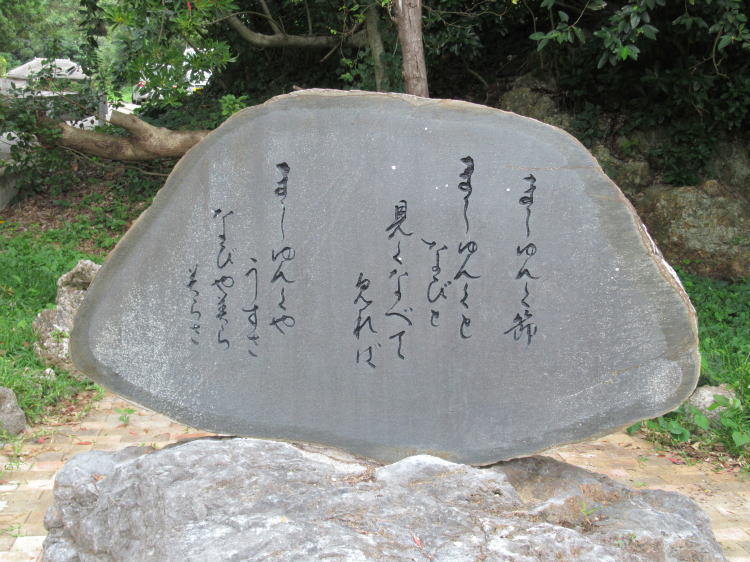 ましゆんく節
ましゆんくと
なびと
見くなべて
見れば
ましゆんくや
うすさ
なびや美ら
美らさ